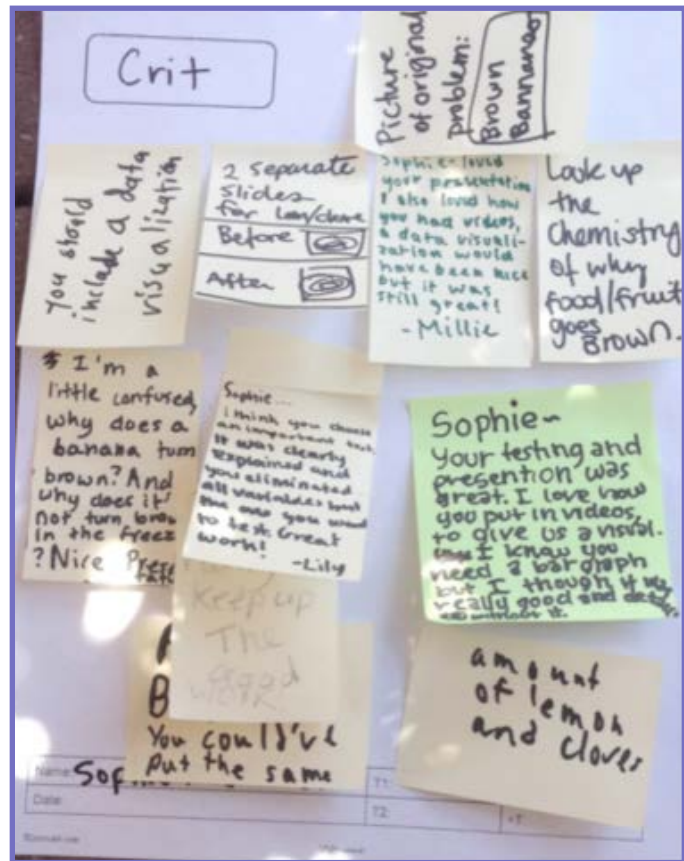 Crit
Picture
of original
problem:
Brown
Bannanas
you should
include a data
visualization
2 separate
slides
for
Before
After
Sophie - loved
your presentation
I also loved how
you had videos,
a data visuali-
zation would
have been nice
but it was
still great!
- Millie
Look up
the
Chemistry
of why
food/fruit
goes
Brown.
I'm a
little confused,
why does a
banana turn
brown? And
why does it
not turn brow
in the freez
? Nice Pres
Sophie...
i think you choose
an important
It was clearly
explained and
you eliminated
all variables but
the one you
to test Great
work!
- Lily
Sophie~
your testing and
presention was
great. I love how
you put in videos,
to give us a visual.
I know you
need a bar graph
but I though it
really good and
without it.
keep up
The
Good
work
B
You could've
put the same
amount
of lemon
and cloves
Name:
Sop
Date:
T1:
T2: